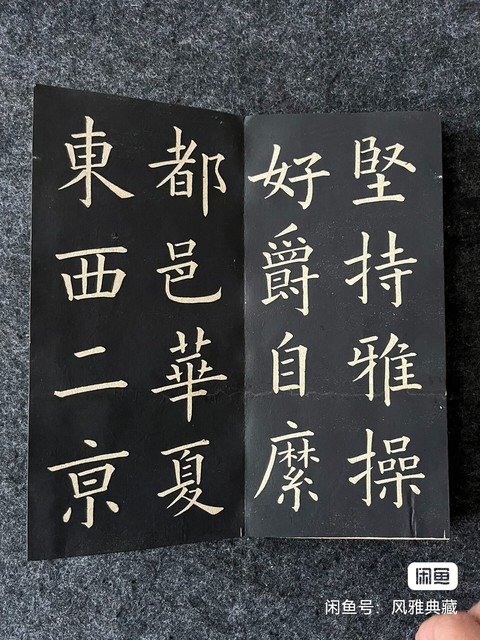 堅持雅操
好爵自縻
都邑華夏
東西二京
闲鱼
闲鱼号：风雅典藏